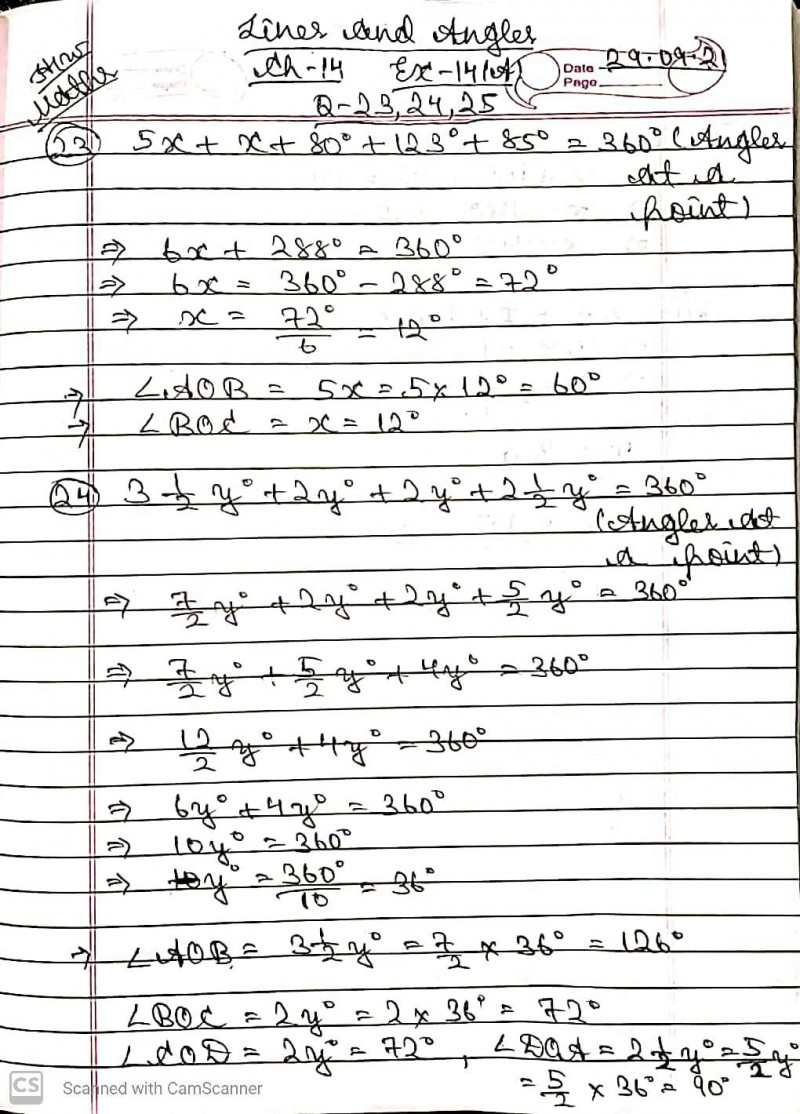 Lines and Angles
H.W
Maths
Ch-14 Ex-14(A)
Date 29.09.21
Page
Q-23,24,25
23) 5x + x + 80° + 123° + 85° = 360° (Angles
at a
point)
⇒ 6x + 288° = 360°
⇒ 6x = 360° - 288° = 72°
⇒ x = 72°/6 = 12°
→ ∠AOB = 5x = 5 × 12° = 60°
→ ∠BOC = x = 12°
24) 3 1/2 y° + 2y° + 2y° + 2 1/2 y° = 360°
(Angles at
a point)
⇒ 7/2 y° + 2y° + 2y° + 5/2 y° = 360°
⇒ 7/2 y° + 5/2 y° + 4y° = 360°
⇒ 12/2 y° + 4y° = 360°
⇒ 6y° + 4y° = 360°
⇒ 10y° = 360°
⇒ y° = 360°/10 = 36°
→ ∠AOB = 3 1/2 y° = 7/2 × 36° = 126°
∠BOC = 2y° = 2 × 36° = 72°
∠COD = 2y° = 72° , ∠DOA = 2 1/2 y° = 5/2 y°
= 5/2 × 36° = 90°
CS Scanned with CamScanner